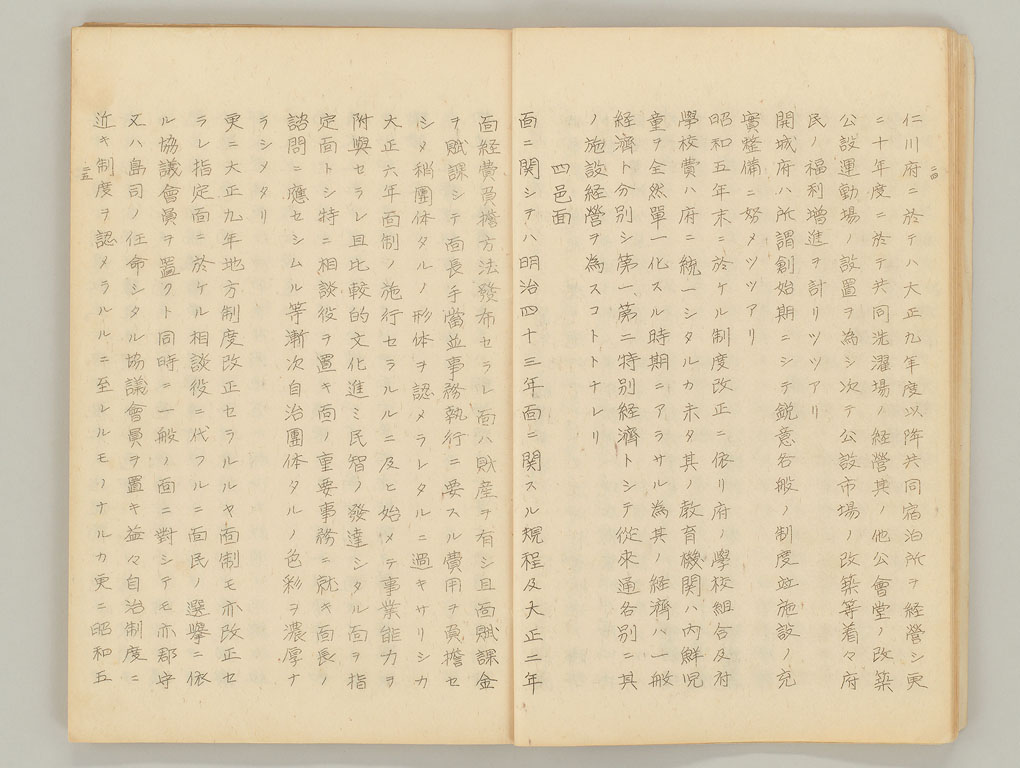 仁川府ニ於テハ大正九年度以降共同宿泊所ヲ経營シ更
ニ十年度ニ於テ共同洗濯場ノ経營其ノ他公會堂ノ改築
公設運動場ノ設置ヲ為シ次テ公設市場ノ改築等着々府
民ノ福利増進ヲ計リツツアリ
開城府ハ所謂創始期ニシテ鋭意各般ノ制度並施設ノ充
實整備ニ努メツツアリ
昭和五年末ニ於ケル制度改正ニ依リ府ノ學校組合及府
學校費ハ府ニ統一シタルカ未タ其ノ教育機関ハ内鮮児
童ヲ全然單一化スル時期ニアラサル為其ノ経濟ハ一般
経濟ト分別シ第一第二特別経濟トシテ従來通各別ニ其
ノ施設経營ヲ為スコトトナレリ
四邑面
面ニ関シテハ明治四十三年面ニ関スル規程及大正二年
二四
面経費負擔方法發布セラレ面ハ財産ヲ有シ且面賦課金
ヲ賦課シテ面長手當並事務執行ニ要スル費用ヲ負擔セ
シタ稍團体タルノ形体ヲ認メラレタルニ過キサリシカ
大正六年面制ノ施行セラルルニ及ヒ始メテ事業能力ヲ
附與セラレ且比較的文化進ミ民智ノ發達シタル面ヲ指
定面トシ特ニ相談役ヲ置キ面ノ重要事務ニ就キ面長ノ
諮問ニ應セシムル等漸次自治團体タルノ色彩ヲ濃厚ナ
ラシメタリ
更ニ大正九年地方制度改正セラルルヤ面制モ亦改正セ
ラレ指定面ニ於ケル相談役ニ代フルニ面民ノ選擧ニ依
ル協議會員ヲ置クト同時ニ一般ノ面ニ對シテモ亦郡守
又ハ島司ノ任命シタル協議會員ヲ置キ益々自治制度ニ
近キ制度ヲ認メラルルニ至レルモノナルカ更ニ昭和五
二五